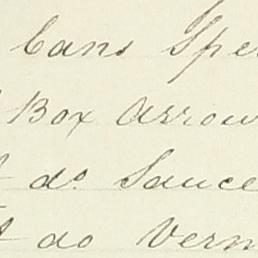 Cans Spe
Box Arrow
do. Sauce
do Verm